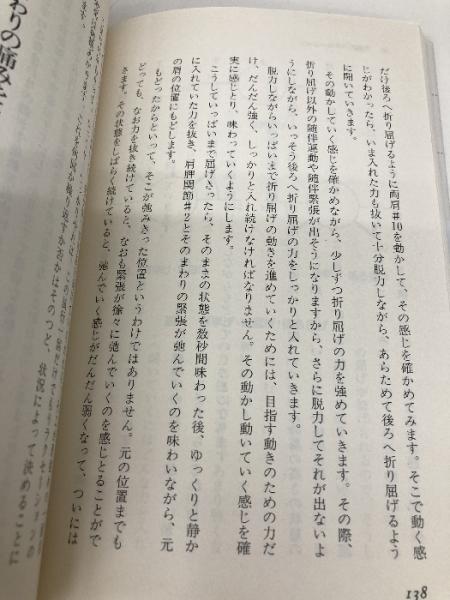 だけ後ろへ折り屈げるように両肩#10を動かして、その感じを確かめてみます。そこで動く感
じがわかったら、いま入れた力も抜いて十分脱力しながら、あらためて後ろへ折り屈げるよう
に開いていきます。
その動かしていく感じを確かめながら、少しずつ折り屈げの力を強めていきます。その際、
折り屈げ以外の随伴運動や随伴緊張が出そうになりますから、さらに脱力してそれが出ないよ
うにしながら、いっそう後ろへ折り屈げの力をしっかりと入れていきます。
脱力しながらいっぱいまで折り屈げの動きを進めていくためには、目指す動きのための力だ
け、だんだん強く、しっかりと入れ続けなければなりません。その動かし動いていく感じを確
実に感じとり、味わっていくようにします。
こうしていっぱいまで屈げきったら、そのままの状態を数秒間味わった後、ゆっくりと静か
に入れていた力を抜き、肩胛関節#2とそのまわりの緊張が弛んでいくのを味わいながら、元
の肩の位置にもどします。
もどったからといって、そこが弛みきった位置というわけではありません。元の位置までも
どっても、なお力を抜き続けていると、なおも緊張が徐々に弛んでいくのを感じとることがで
きます。その状態をしばらく続けていると、弛んでいく感じがだんだん弱くなって、ついには
状況によって決めることに
わりの痛みと
138